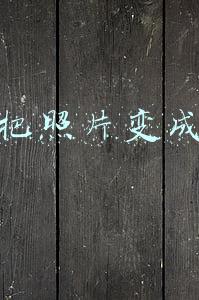 把照片变成